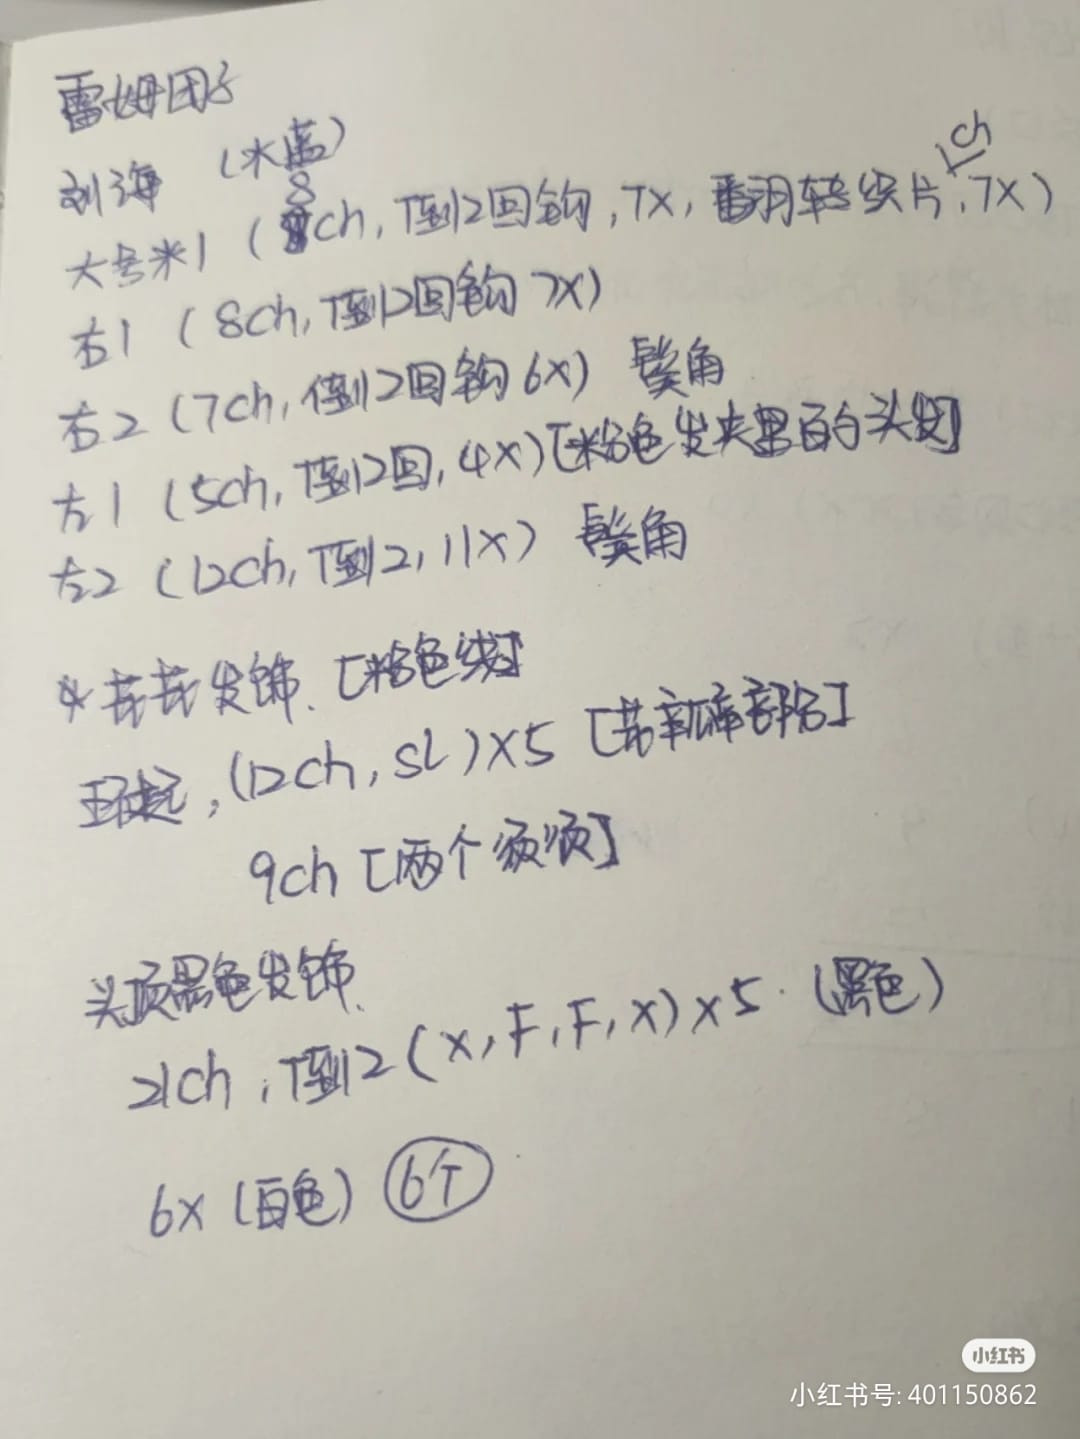 雷姆团子
刘海 (水蓝)
大号米1 (8ch,T到2回钩,7X,翻转织片,1ch,7X)
右1 (8ch,T到2回钩7X)
右2 (7ch,倒2回钩6X) 鬓角
左1 (5ch,T到2回,4X)[粉色发夹里面的头发]
左2 (12ch,T到2,11X) 鬓角
*花花发饰.[粉色线]
环起,(12ch,SL)X5 [花瓣部份]
9ch [两个须须]
头顶黑色发饰.
21ch,T到2(X,F,F,X)X5.(黑色)
6X(白色) 6个
小红书
小红书号: 401150862